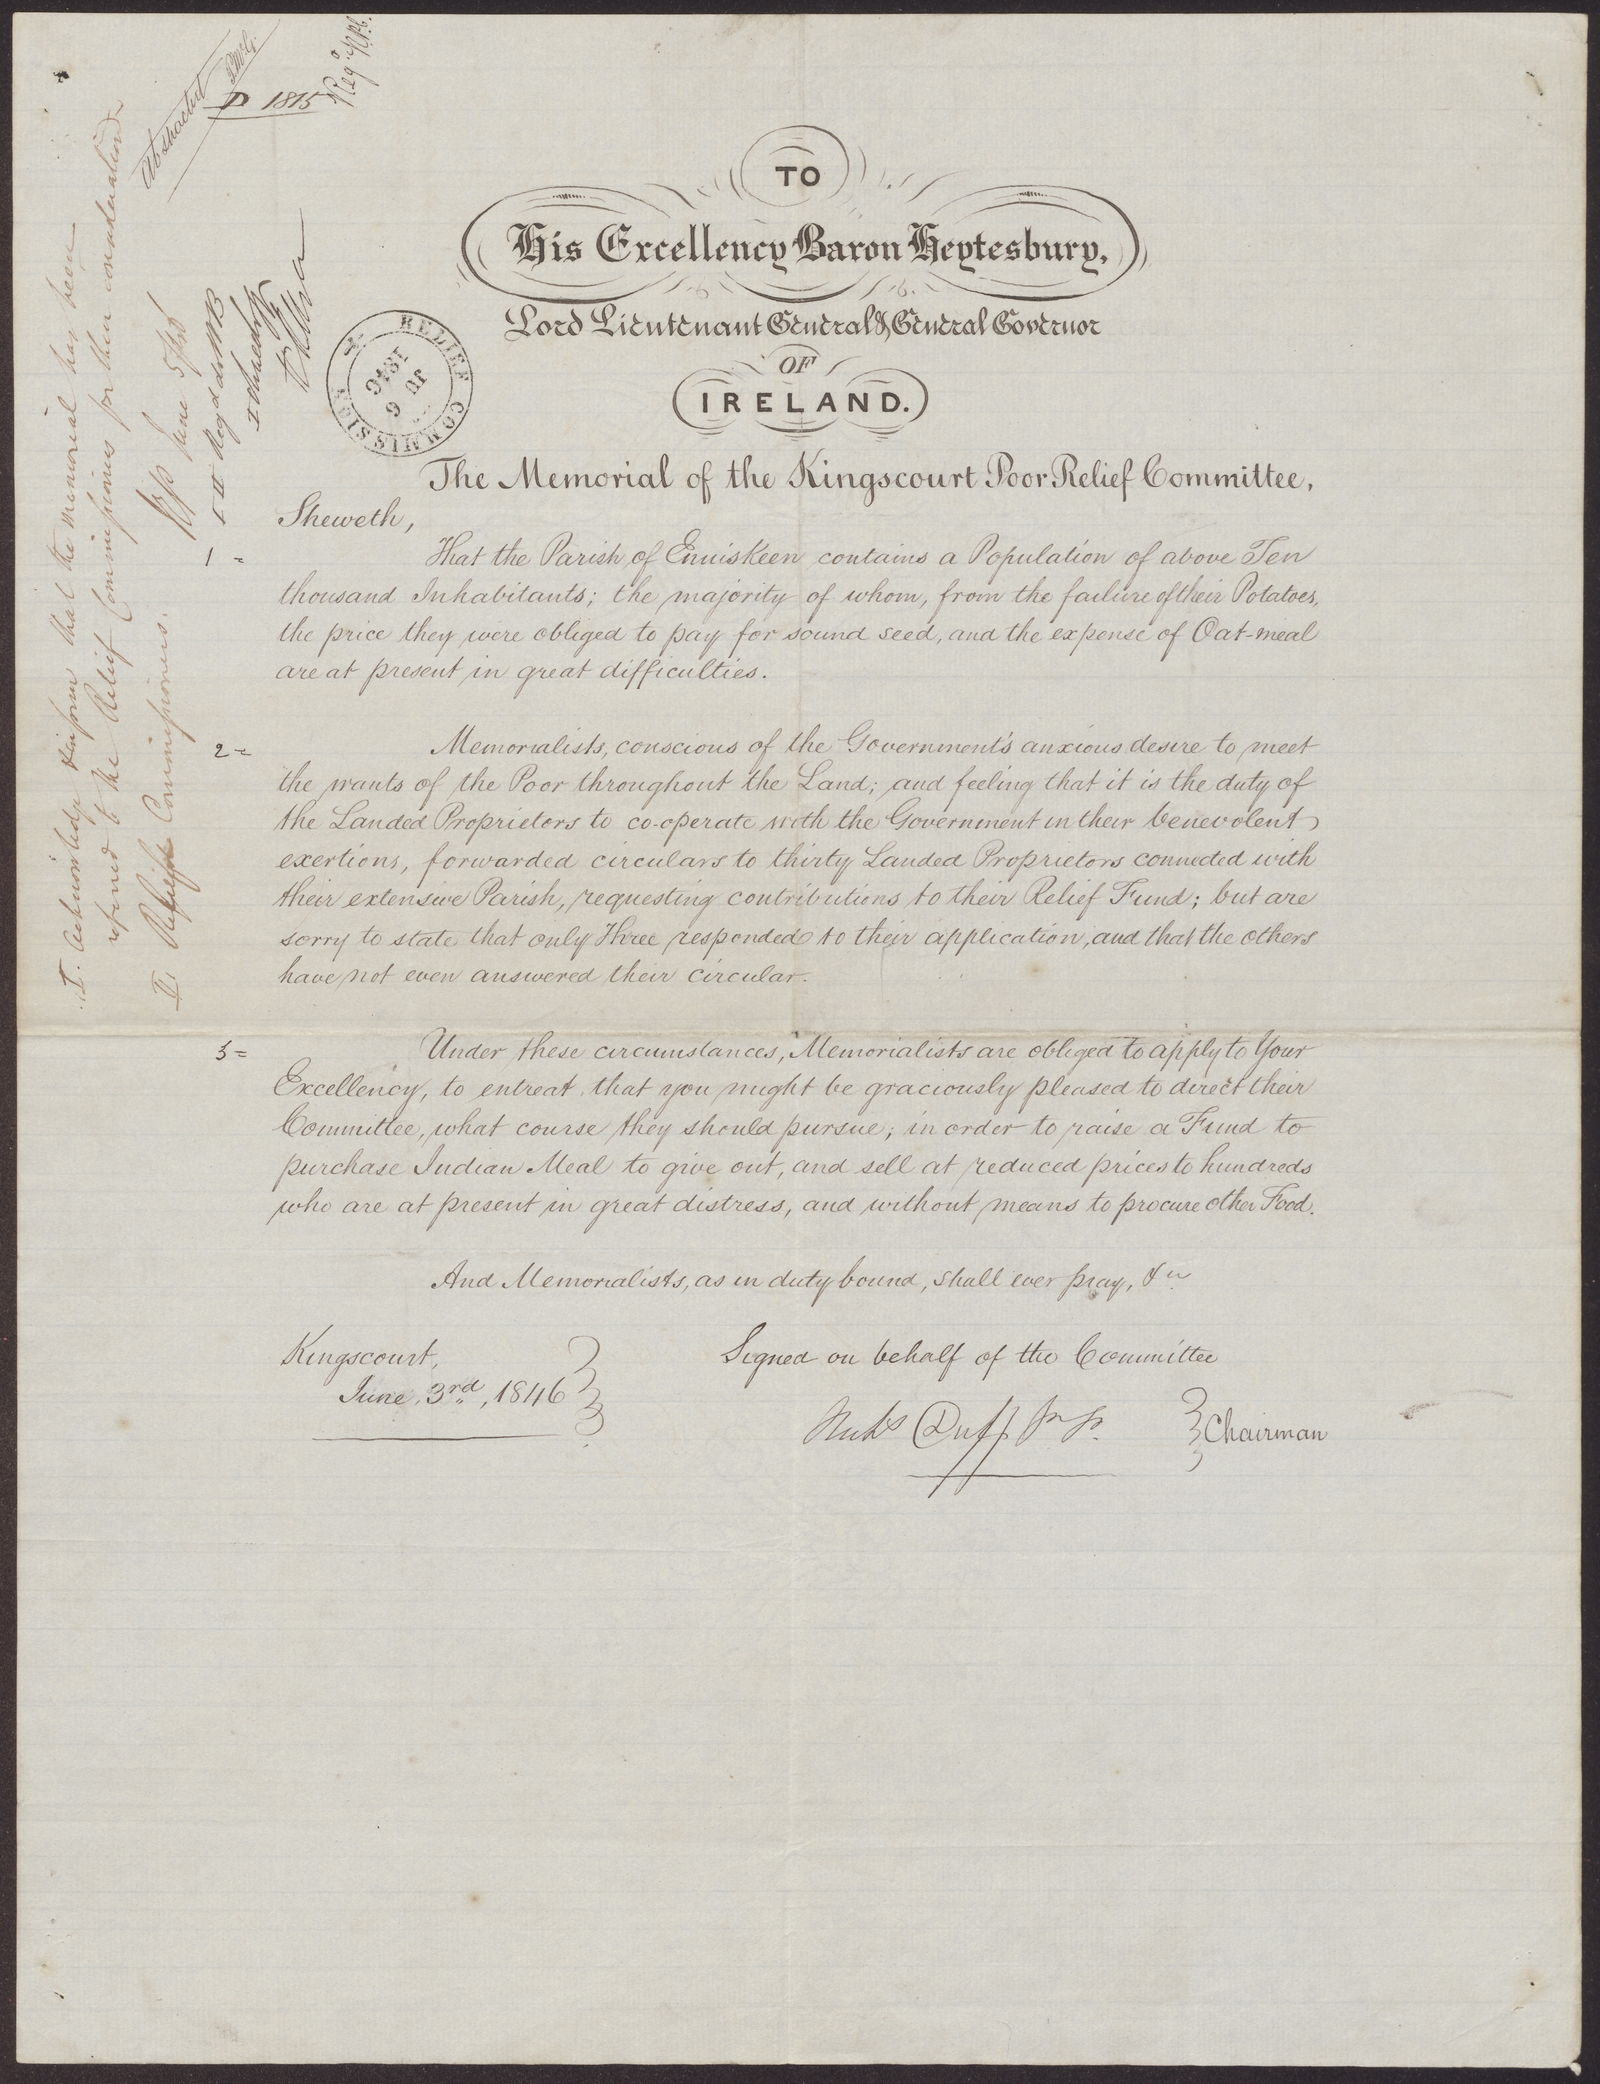 Abstracted
D 1815
TO
His Excellency Baron Heytesbury,
Lord Lieutenant General & General Governor
OF
IRELAND.
RELIEF COMMISSION
JU 6
1846
The Memorial of the Kingscourt Poor Relief Committee,
Sheweth,
1 = That the Parish of Enniskeen contains a Population of above Ten
thousand Inhabitants; the majority of whom, from the failure of their Potatoes,
the price they were obliged to pay for sound seed, and the expense of Oat-meal
are at present in great difficulties.
2 = Memorialists, conscious of the Government's anxious desire to meet
the wants of the Poor throughout the Land; and feeling that it is the duty of
the Landed Proprietors to co-operate with the Government in their benevolent
exertions, forwarded circulars to thirty Landed Proprietors connected with
their extensive Parish, requesting contributions to their Relief Fund; but are
sorry to state that only Three responded to their application, and that the others
have not even answered their circular.
3 = Under these circumstances, Memorialists are obliged to apply to Your
Excellency, to entreat that you might be graciously pleased to direct their
Committee, what course they should pursue; in order to raise a Fund to
purchase Indian Meal to give out, and sell at reduced prices to hundreds
who are at present in great distress, and without means to procure other Food.
And Memorialists, as in duty bound, shall ever pray, &c
Kingscourt,
June, 3rd, 1846
Signed on behalf of the Committee
Duff P. P.
Chairman
I. Acknowledge & inform that the Memorial has been
referred to the Relief Commissioners for their consideration
II Relief Commissioners.
June 5/46